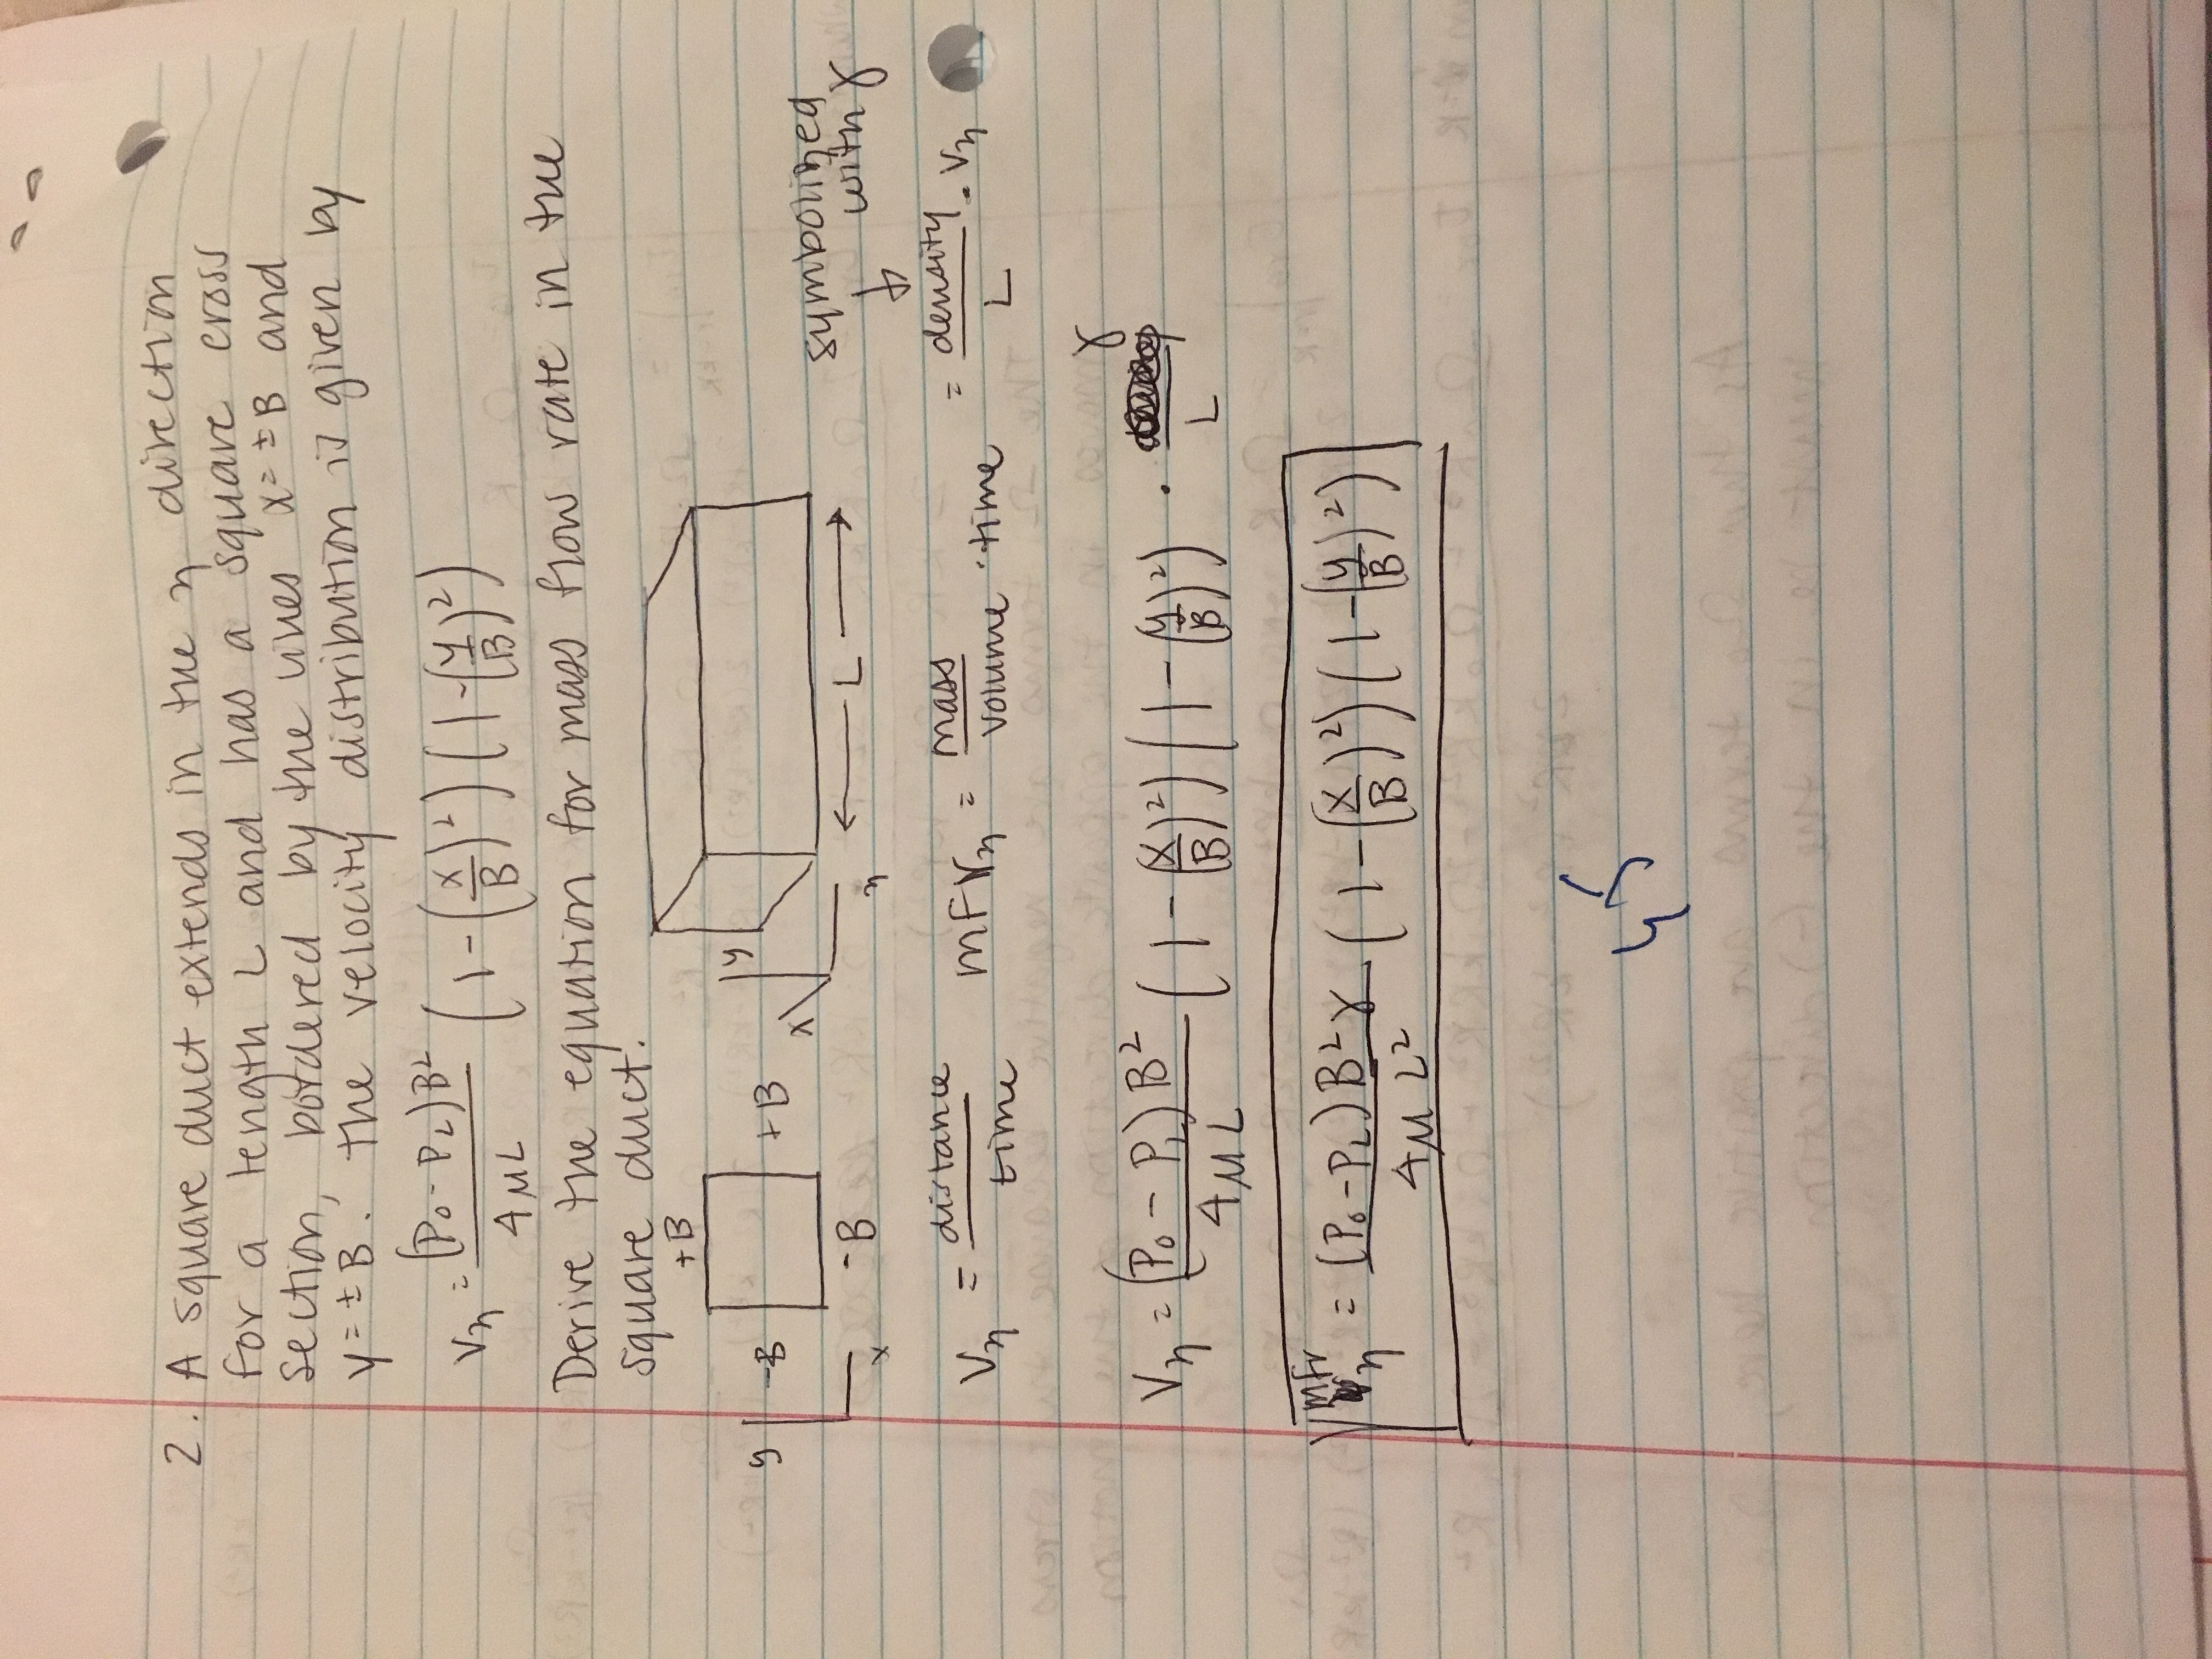 2. A square duct extends in the z direction
for a length L and has a square cross
section, bordered by the lines x= ±B and
y= ±B. The velocity distribution is given by
Vz = (P₀ - P_L)B² / 4μL (1-(x/B)²)(1-(y/B)²)
Derive the equation for mass flow rate in the
square duct.
+B
y -B +B
x -B
y
x
z
L
symbolized
with γ
Vz = distance / time mFrz = mass / volume · time = density / L · Vz
Vz = (P₀ - P_L)B² / 4μL (1-(x/B)²)(1-(y/B)²) · γ / L
mfr z = (P₀-P_L)B²γ / 4μL² (1-(x/B)²)(1-(y/B)²)
45